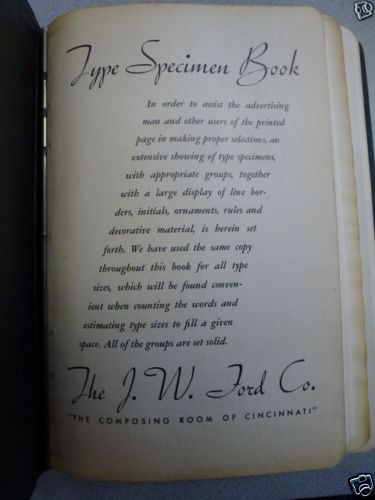 Type Specimen Book
In order to assist the advertising
man and other users of the printed
page in making proper selections, an
extensive showing of type specimens,
with appropriate groups, together
with a large display of line bor-
ders, initials, ornaments, rules and
decorative material, is herein set
forth. We have used the same copy
throughout this book for all type
sizes, which will be found conven-
ient when counting the words and
estimating type sizes to fill a given
space. All of the groups are set solid.
The J. W. Ford Co.
"THE COMPOSING ROOM OF CINCINNATI"